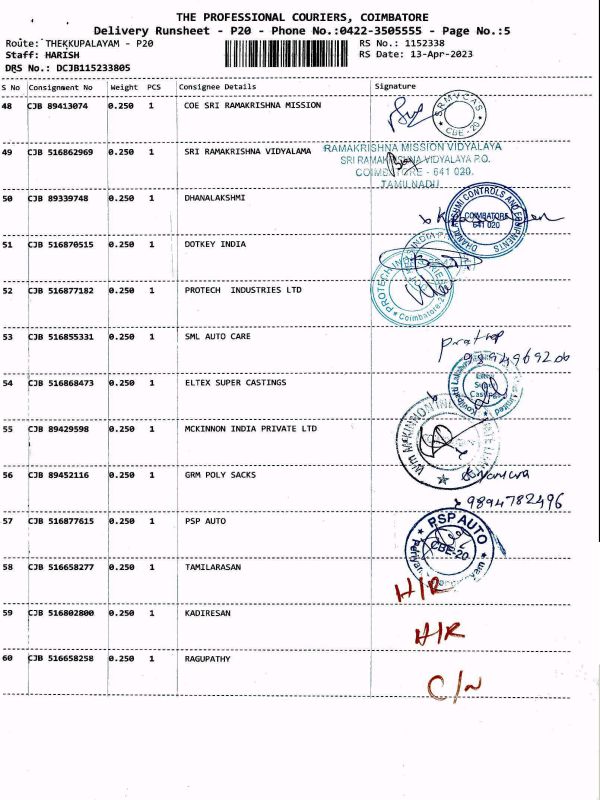 THE PROFESSIONAL COURIERS, COIMBATORE
Delivery Runsheet - P20 - Phone No.:0422-3505555 - Page No.:5
Route: THEKKUPALAYAM - P20 RS No.: 1152338
Staff: HARISH RS Date: 13-Apr-2023
DRS No.: DCJB115233805
S No Consignment No Weight PCS Consignee Details Signature
48 CJB 89413074 0.250 1 COE SRI RAMAKRISHNA MISSION
SRMVCAS
CBE-20
49 CJB 516862969 0.250 1 SRI RAMAKRISHNA VIDYALAMA
RAMAKRISHNA MISSION VIDYALAYA
SRI RAMAKRISHNA VIDYALAYA P.O.
COIMBATORE - 641 020.
TAMILNADU
50 CJB 89339748 0.250 1 DHANALAKSHMI
DHANALAKSHMI CONTROLS AND EQUIPMENTS
COIMBATORE
641 020
51 CJB 516870515 0.250 1 DOTKEY INDIA
52 CJB 516877182 0.250 1 PROTECH INDUSTRIES LTD
PROTECH
Coimbatore-
53 CJB 516855331 0.250 1 SML AUTO CARE
prathap
54 CJB 516868473 0.250 1 ELTEX SUPER CASTINGS
Super
Castings
Limited
55 CJB 89429598 0.250 1 MCKINNON INDIA PRIVATE LTD
MCKINNON
56 CJB 89452116 0.250 1 GRM POLY SACKS
9894782496
57 CJB 516877615 0.250 1 PSP AUTO
PSP AUTO
CBE-20
58 CJB 516658277 0.250 1 TAMILARASAN
H/R
59 CJB 516802800 0.250 1 KADIRESAN
H/R
60 CJB 516658258 0.250 1 RAGUPATHY
C/N